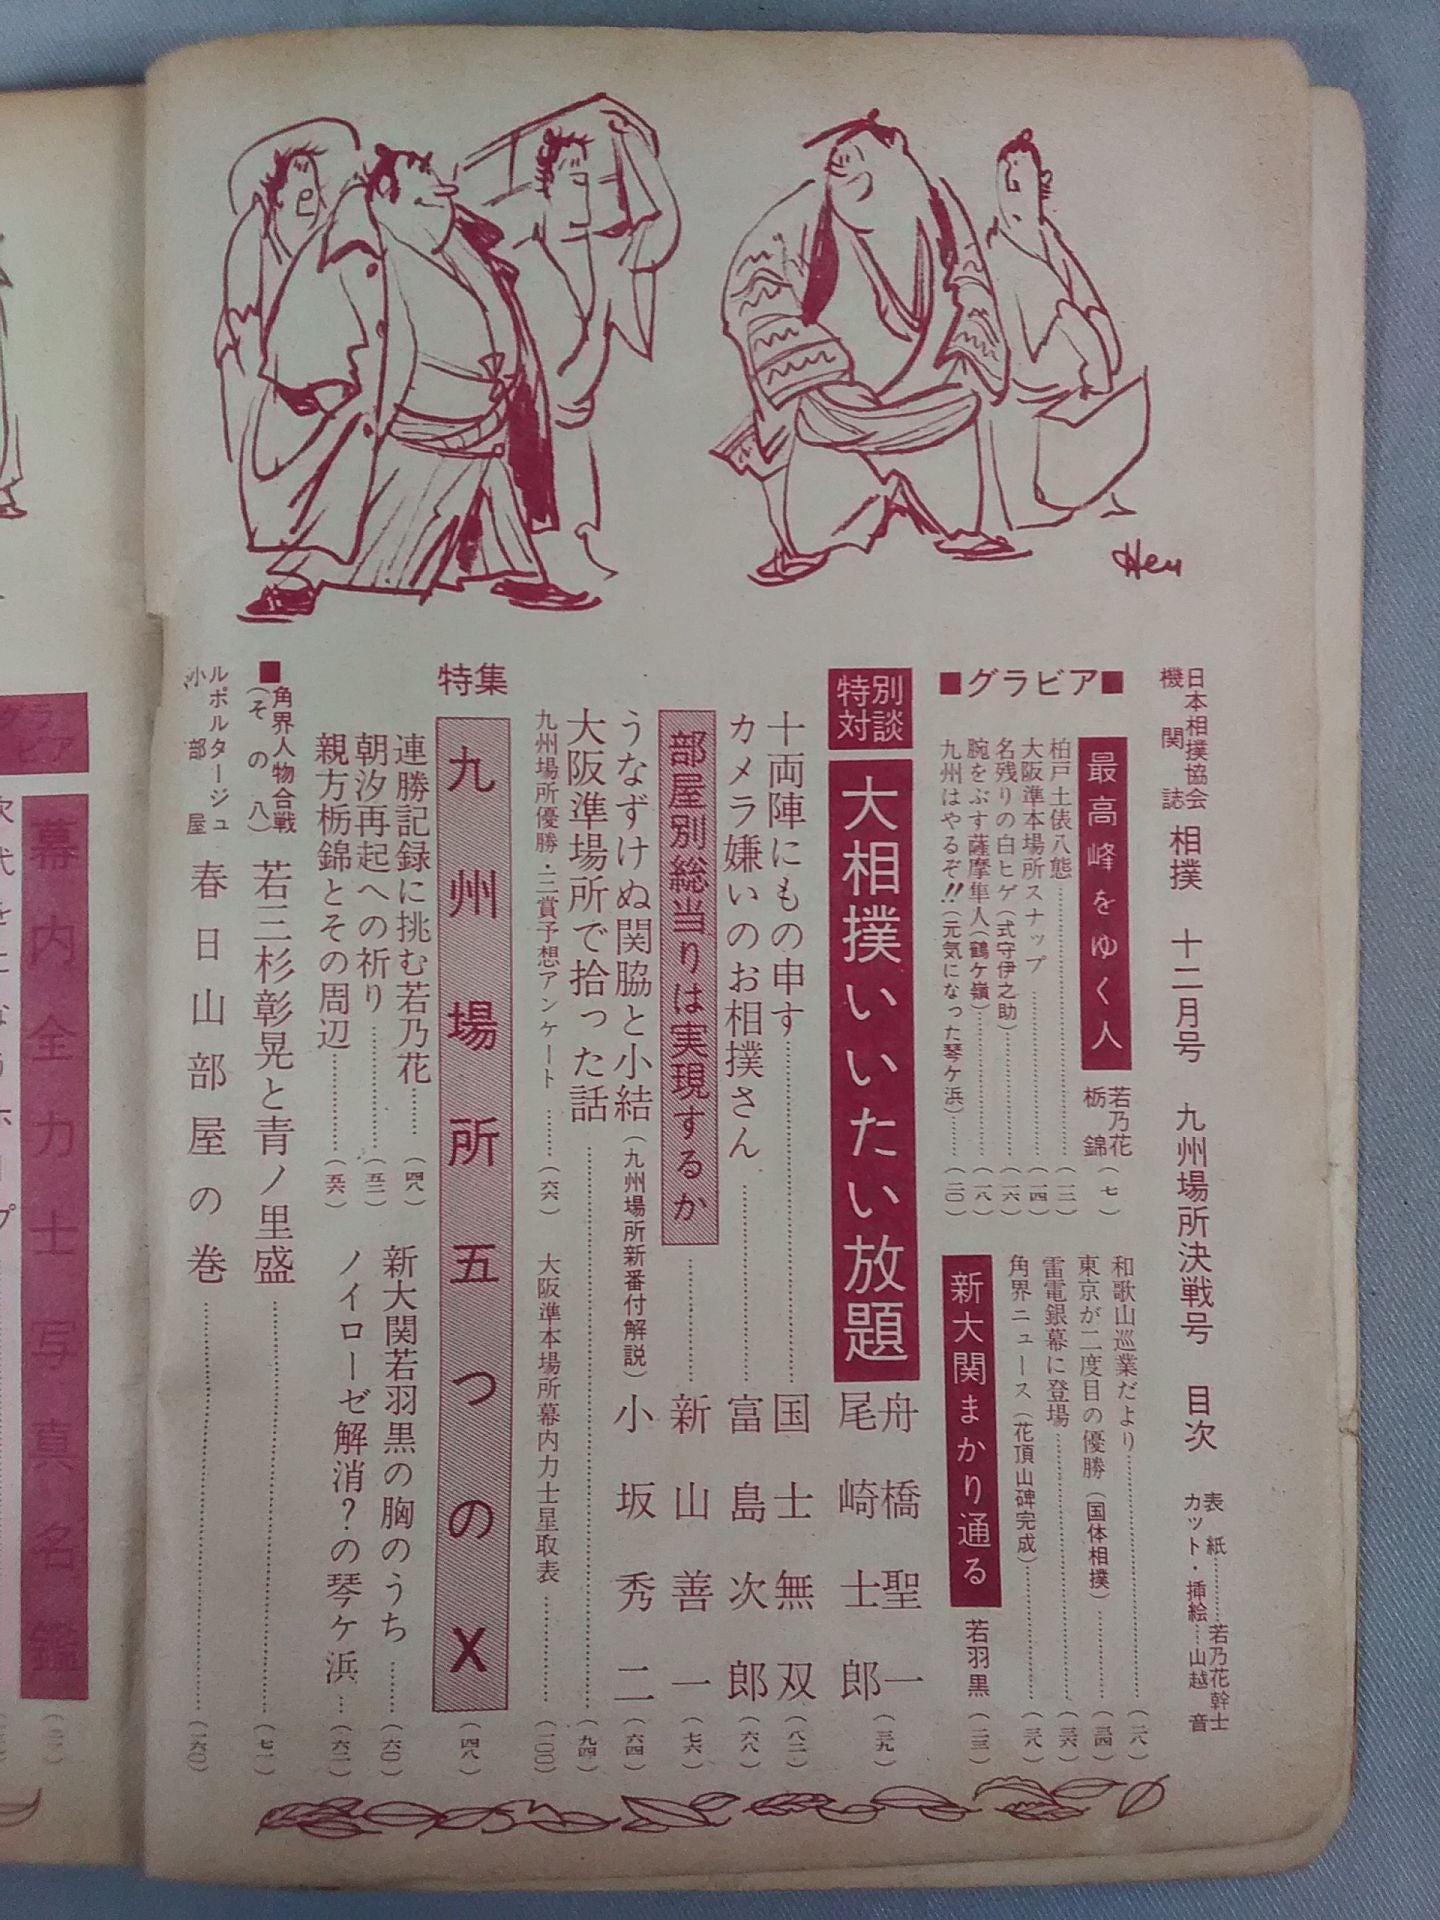 日本相撲協会
機関誌
相撲 十二月号 九州場所決戦号 目次
表紙…………若乃花幹士
カット・挿絵…山越音
■グラビア■
最高峰をゆく人 若乃花 栃錦(七)
柏戸土俵八態(一二)
大阪準本場所スナップ(一四)
名残りの白ヒゲ(式守伊之助)(一六)
腕をぶす薩摩隼人(鶴ケ嶺)(一八)
九州はやるぞ!!(元気になった琴ケ浜)(二〇)
和歌山巡業だより(二八)
東京が二度目の優勝(国体相撲)(三四)
雷電銀幕に登場(三六)
角界ニュース(花頂山碑完成)(三八)
新大関まかり通る 若羽黒(二三)
特別対談
大相撲いいたい放題 舟橋聖一 尾崎士郎(三九)
十両陣にもの申す 国士無双(八二)
カメラ嫌いのお相撲さん 富島次郎(六八)
部屋別総当りは実現するか 新山善一(七六)
うなずけぬ関脇と小結(九州場所新番付解説) 小坂秀二(六四)
大阪準場所で拾った話(九四)
九州場所優勝・三賞予想アンケート(六六)
大阪準本場所幕内力士星取表(一〇〇)
特集
九州場所五つのX(四八)
連勝記録に挑む若乃花(四八)
朝汐再起への祈り(五二)
親方栃錦とその周辺(五六)
新大関若羽黒の胸のうち(六〇)
ノイローゼ解消?の琴ケ浜(六二)
■角界人物合戦(その八) 若三杉彰晃と青ノ里盛(七一)
ルポルタージュ 小部屋 春日山部屋の巻(一六〇)
Hen
グラビア
幕内全力士写真名鑑